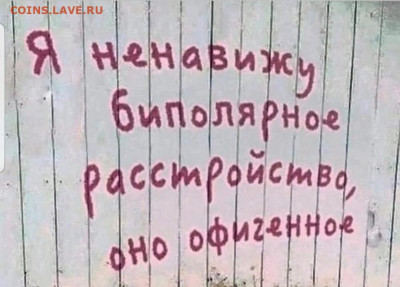 COINS.LAVE.RU
Я ненавижу
биполярное
расстройство,
оно офигенное